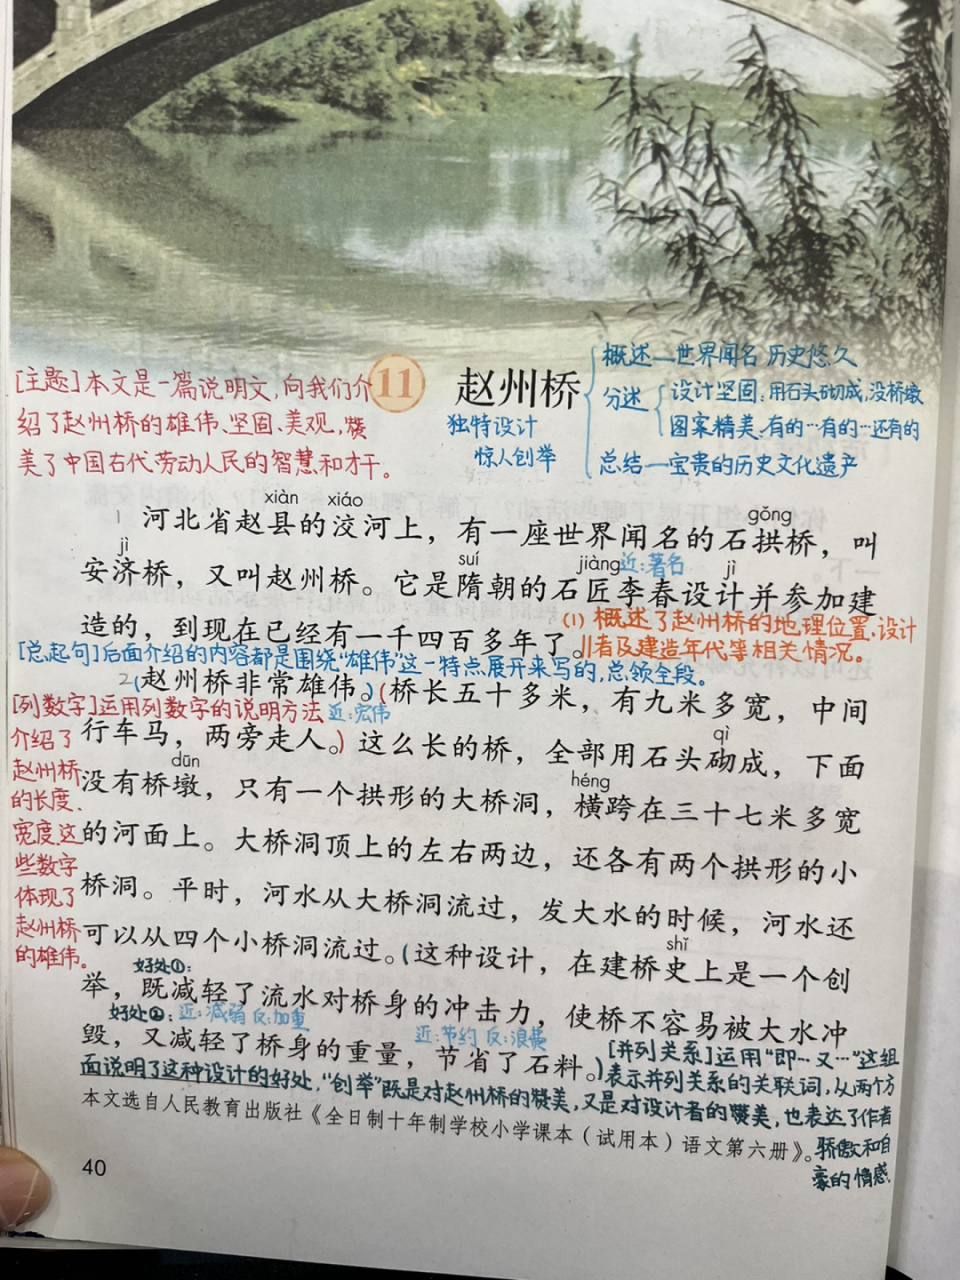 概述—世界闻名 历史悠久
[主题]本文是一篇说明文,向我们介
11 赵州桥
分述 设计坚固:用石头砌成,没桥墩
绍了赵州桥的雄伟、坚固、美观,赞
独特设计
图案精美:有的…有的…还有的
美了中国古代劳动人民的智慧和才干。
惊人创举
总结—宝贵的历史文化遗产
xiàn xiáo gǒng
1 河北省赵县的洨河上,有一座世界闻名的石拱桥,叫
jì suí jiàng 近:著名 jì
安济桥,又叫赵州桥。它是隋朝的石匠李春设计并参加建
造的,到现在已经有一千四百多年了。
(1) 概述了赵州桥的地理位置、设计
者及建造年代等相关情况。
[总起句]后面介绍的内容都是围绕“雄伟”这一特点展开来写的,总领全段。
2(赵州桥非常雄伟。)(桥长五十多米,有九米多宽,中间
[列数字]运用列数字的说明方法 近:宏伟
行车马,两旁走人。)这么长的桥,全部用石头砌成,下面
qì
dūn héng
没有桥墩,只有一个拱形的大桥洞,横跨在三十七米多宽
的河面上。大桥洞顶上的左右两边,还各有两个拱形的小
桥洞。平时,河水从大桥洞流过,发大水的时候,河水还
可以从四个小桥洞流过。(这种设计,在建桥史上是一个创
shǐ
介绍了
赵州桥
的长度、
宽度,这
些数字
体现了
赵州桥
的雄伟。
好处①:
举,既减轻了流水对桥身的冲击力,使桥不容易被大水冲
好处②: 近:减弱 反:加重 近:节约 反:浪费
毁,又减轻了桥身的重量,节省了石料。)
[并列关系]运用“即…又…”这组
表示并列关系的关联词,从两个方
面说明了这种设计的好处,“创举”既是对赵州桥的赞美,又是对设计者的赞美,也表达了作者
骄傲和自
豪的情感.
本文选自人民教育出版社《全日制十年制学校小学课本(试用本)语文第六册》。
40